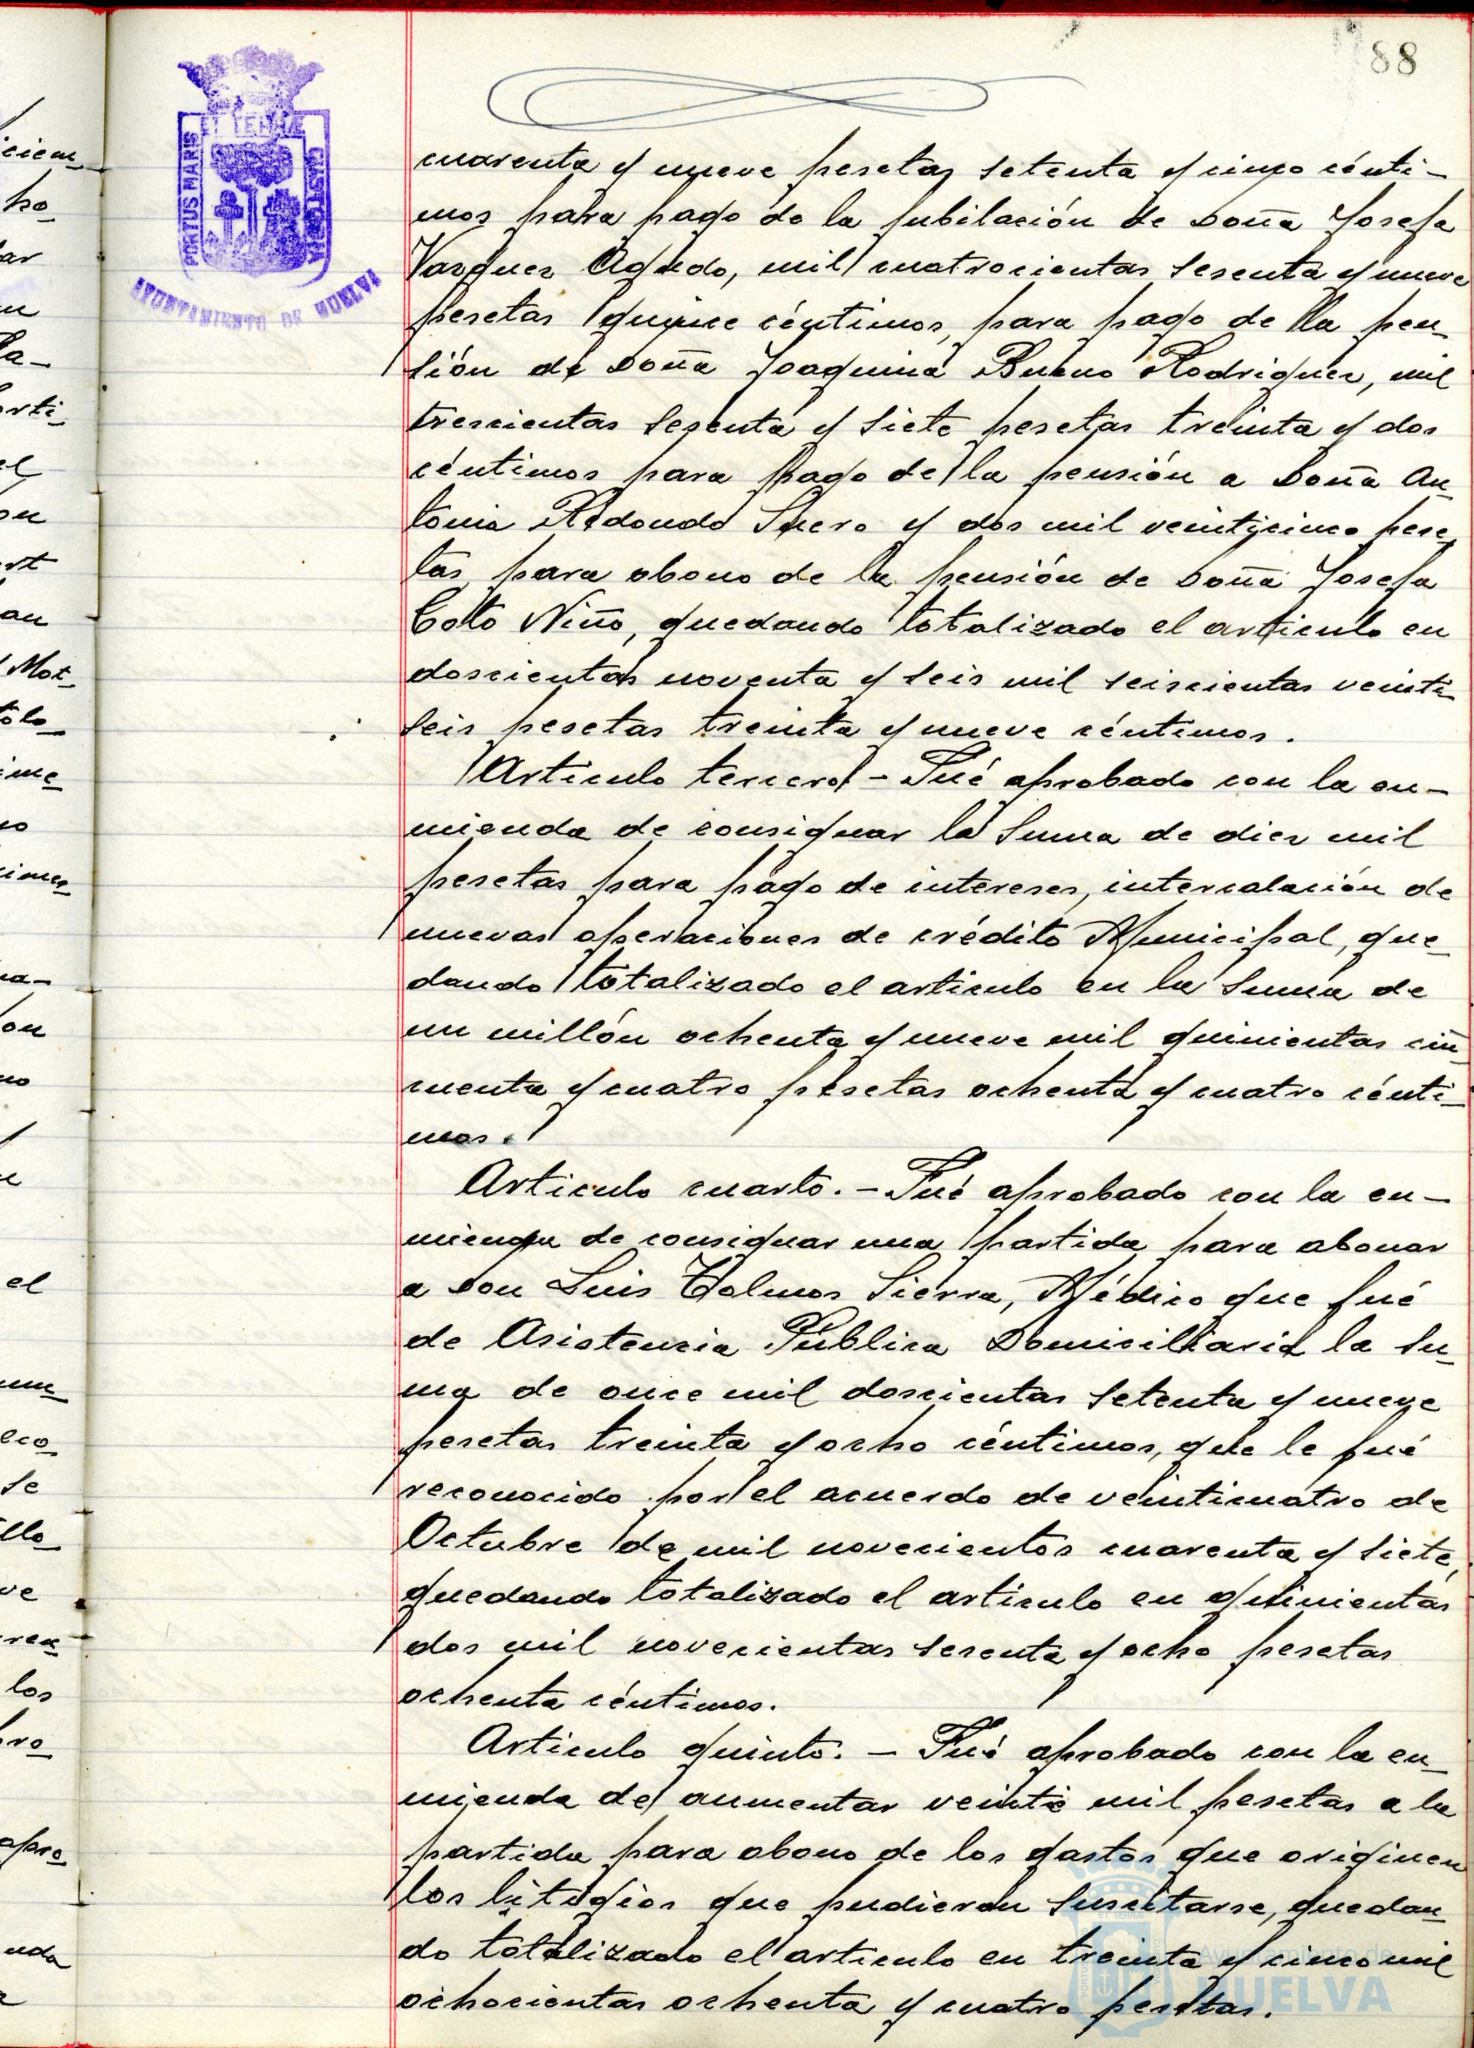 88
ET TERRÆ
PORTUS MARIS
CUSTODIA
AYUNTAMIENTO DE HUELVA
cuarenta y nueve pesetas setenta y cinco cénti-
mos para pago de la jubilación de Doña Josefa
Vazquez Agudo, mil cuatrocientas sesenta y nueve
pesetas quince céntimos, para pago de la pen-
sión de Doña Joaquina Bueno Rodriguez, mil
trescientas sesenta y siete pesetas treinta y dos
céntimos para pago de la pensión a Doña An-
tonia Redondo Suero y dos mil veinticinco pese-
tas, para abono de la pensión de Doña Josefa
Coto Niño, quedando totalizado el articulo en
doscientas noventa y seis mil seiscientas veinti-
seis pesetas treinta y nueve céntimos.
Articulo tercero - Fué aprobado con la en-
mienda de consignar la suma de diez mil
pesetas para pago de intereses, intercalación de
nuevas operaciones de crédito Municipal, que-
dando totalizado el articulo en la suma de
un millón ochenta y nueve mil quinientas cin-
cuenta y cuatro pesetas ochenta y cuatro cénti-
mos.
Articulo cuarto. - Fué aprobado con la en-
mienda de consignar una partida para abonar
a Don Luis Tolmos Sierra, Médico que fué
de Asistencia Pública Domiciliaria la su-
ma de once mil doscientas setenta y nueve
pesetas treinta y ocho céntimos, que le fué
reconocido por el acuerdo de veinticuatro de
Octubre de mil novecientos cuarenta y siete,
quedando totalizado el articulo en quinientas
dos mil novecientas sesenta y ocho pesetas
ochenta céntimos.
Articulo quinto. - Fué aprobado con la en-
mienda de aumentar veinte mil pesetas a la
partida para abono de los gastos que originen
los litigios que pudieran suscitarse, quedan-
do totalizado el articulo en treinta y cinco mil
ochocientas ochenta y cuatro pesetas.
Ayuntamiento de
HUELVA